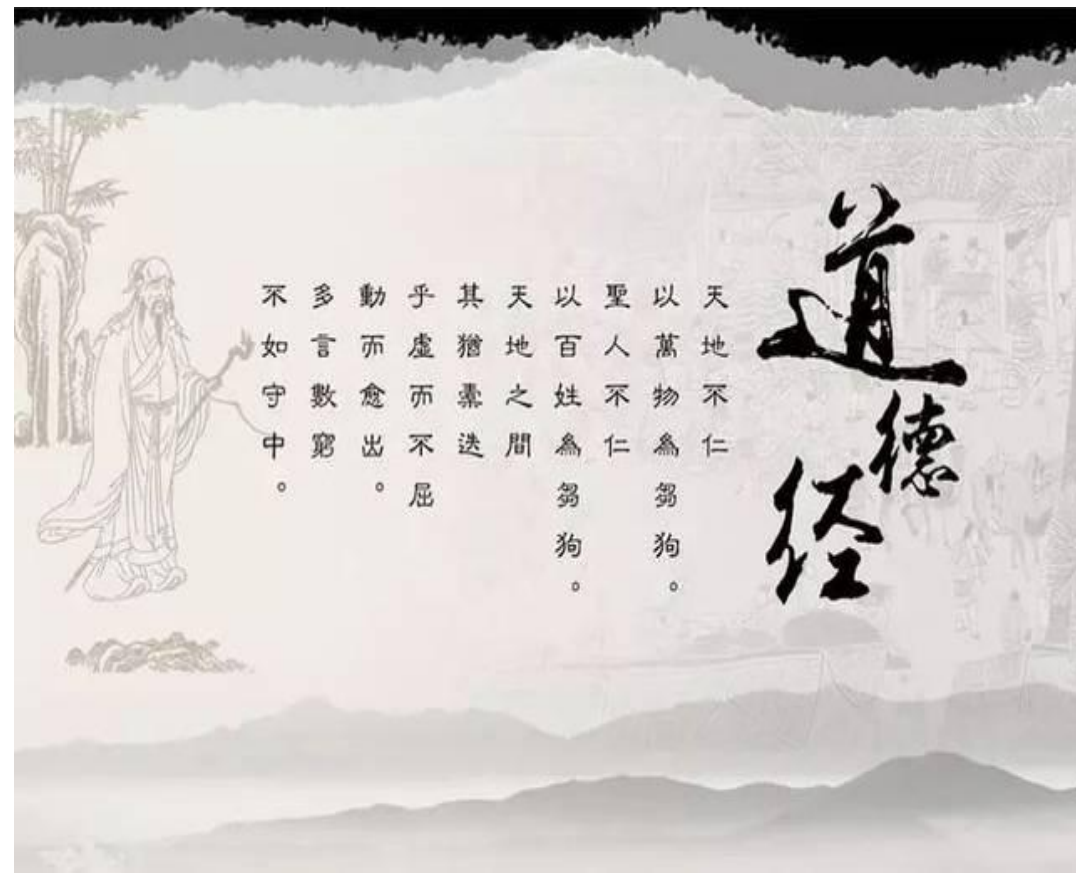 道德经
天地不仁
以萬物為芻狗。
聖人不仁
以百姓為芻狗。
天地之間
其猶橐迭
乎虛而不屈
動而愈出。
多言數窮
不如守中。